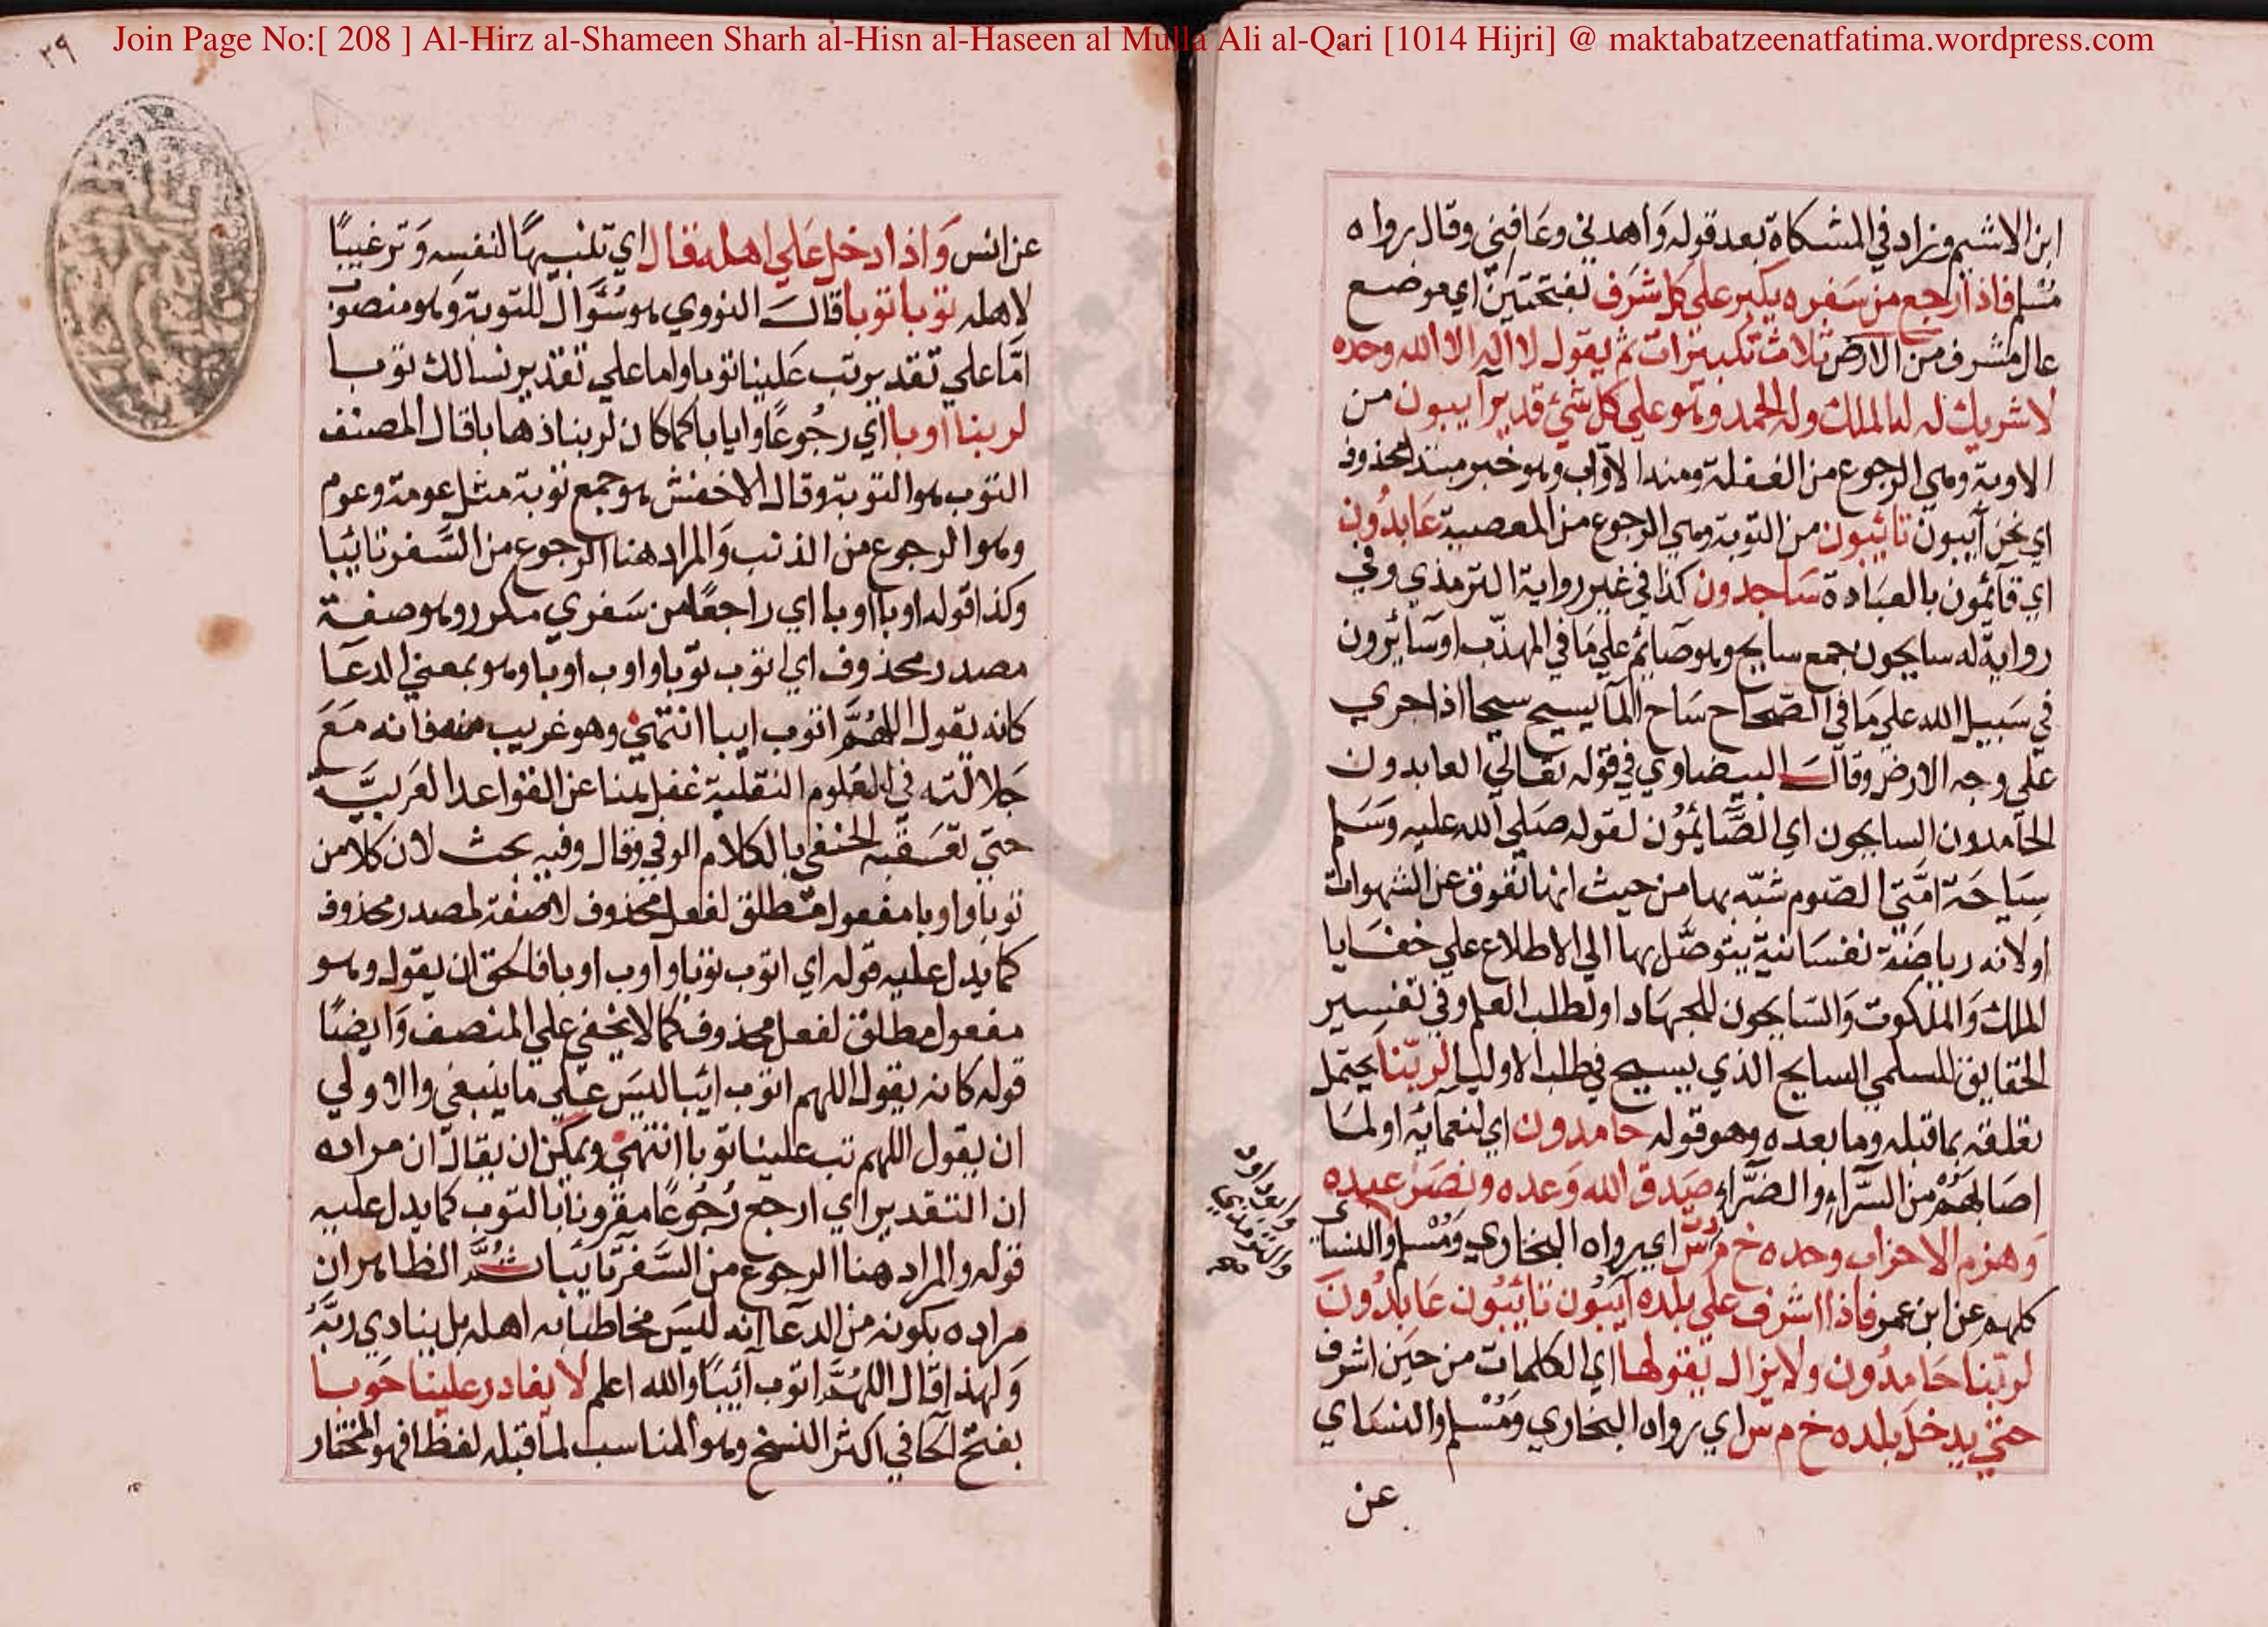 Join Page No:[ 208 ] Al-Hirz al-Shameen Sharh al-Hisn al-Haseen al Mulla Ali al-Qari [1014 Hijri] @ maktabatzeenatfatima.wordpress.com
ابن الاشيم وزاد في المشكاة بعد قوله وَاهدني وعَافني وقال رواه
مسْلم فاذا رجع من سَفره يكبر على كل شَرَف بفتحتين اي موضع
عال مشرف من الارض ثلاث تكبيرات ثم يقول لا اله الا الله وحده
لا شريك له له الملك وله الحمد وهو علي كل شئ قدير آيبون من
الاوبة وهي الرجوع من الغفلة ومنه الاوّاب وهو خبر مبتدا محذوف
اي نحن آيبون تائبون من التوبة وهي الرجوع من المعصية عَابدُون
اي قائمون بالعبَادة سَاجدون كذا في غير رواية الترمذي وفي
رواية له سايحون جمع سايح وهو صَائم علي مَا في المهذّب او سَائرون
في سَبيل الله علي مَا في الصّحاح سَاح المآ يسيح سيحا اذا جري
علي وجه الارض وقالَ البيضاوي في قوله تعالي العابدون
الحَامدون السايحون اي الصَّائمُون لقوله صَلي الله عليه وَسَلم
سيَاحَة امّتي الصّوم شبّه بها من حيث انها تعوق عن الشهوات
او لانه رياضَة نفسَانية يتوصَّل بها الي الاطلاع علي خفَايا
الملك وَالملكوت وَالسَايحون للجهَاد او لطلب العلم وفي تفسِير
الحقايق للسلمي السايح الذي يسيح في طلب الاوليا لربّنا يحتمل
تعلقه بما قبله وما بعده وهو قوله حَامدون اي لنعمائه او لمَا
اصَابهُمْ من السَّرّاءِ والضّرّاءِ صَدق الله وَعده ونصَر عبده
وَهزم الاحزاب وحده خ م د ت س اي رواه البخاري وَمُسْلم والنسائي
وابو داود
والترمذي
صح
كلهم عن ابن عمر فاذا اشرف علي بلده آيبُون تائبُون عَابدُونَ
لربّنا حَامدُون ولا يزال يقولها اي الكلمات من حيَن اشرف
حتي يدخل بلده خ م س اي رواه البخاري وَمُسْلم والنسَاي
عن
٢٩
عن انس وَاذا دخل عَلي اهله قال اي تنبيهًا لنفسِه وَترغيبًا
لاهله توبا توبا قالَ النووي هو سُؤال للتوبة وَهو منصوب
امَّا علي تقدير تب عَلينا توبا واما علي تقدير نسالك توبا
لربنا اوبا اي رجُوعًا وايابا كما كان لربنا ذهابا قال المصنف
التوب هو التوبة وقال الاخفش هو جمع توبة مثل عومة وعوم
وهو الرجوع من الذنب وَالمراد هنا الرجوع من السَّفر تائبا
وكذا قوله اوبا اوبا اي راجعًا من سَفري مكرر وهو صفة
مصدر محذوف اي اتوب توبا واوب اوبا وهو بمعني الدعَا
كانه يقول اللهُمَّ اتوب ايبا انتهيٰ وهو غريب منه فانه مَعَ
جَلالته في العُلوم النقلية غفل هنا عن القواعد العَربيَّة
حتي تعَقبه الحنفي بالكلام الوفي وقال وفيه بحث لان كلا من
توبا واوبا مفعول مطلق لفعل محذوف لا صفة لمصدر محذوف
كما يدل عليه قوله اي اتوب توبا واوب اوبا فالحق ان يقول وهو
مفعول مطلق لفعل محذوف كما لا يخفي علي المنصف وَايضًا
قوله كانه يقول اللهم اتوب ائبا ليسَ عَلي ما ينبغي والاولي
ان يقول اللهم تب علينا توبا انتهيٰ ويمكن ان يقال ان مراده
ان التقدير اي ارجع رجُوعًا مقرونا بالتوب كما يدل عليه
قوله والمراد هنا الرجوع من السَّفر تائبا ثُمَّ الظاهر ان
مراده بكونه من الدعَا انه ليسَ مخاطبا به اهله بل ينادي ربَّهُ
وَلهذا قال اللهُمَّ اتوب آئبًا وَالله اعلم لا يغادر علينا حَوبا
بفتح الحَا في اكثر النسخ وهو المناسب لما قبله لفظا فهو المختار